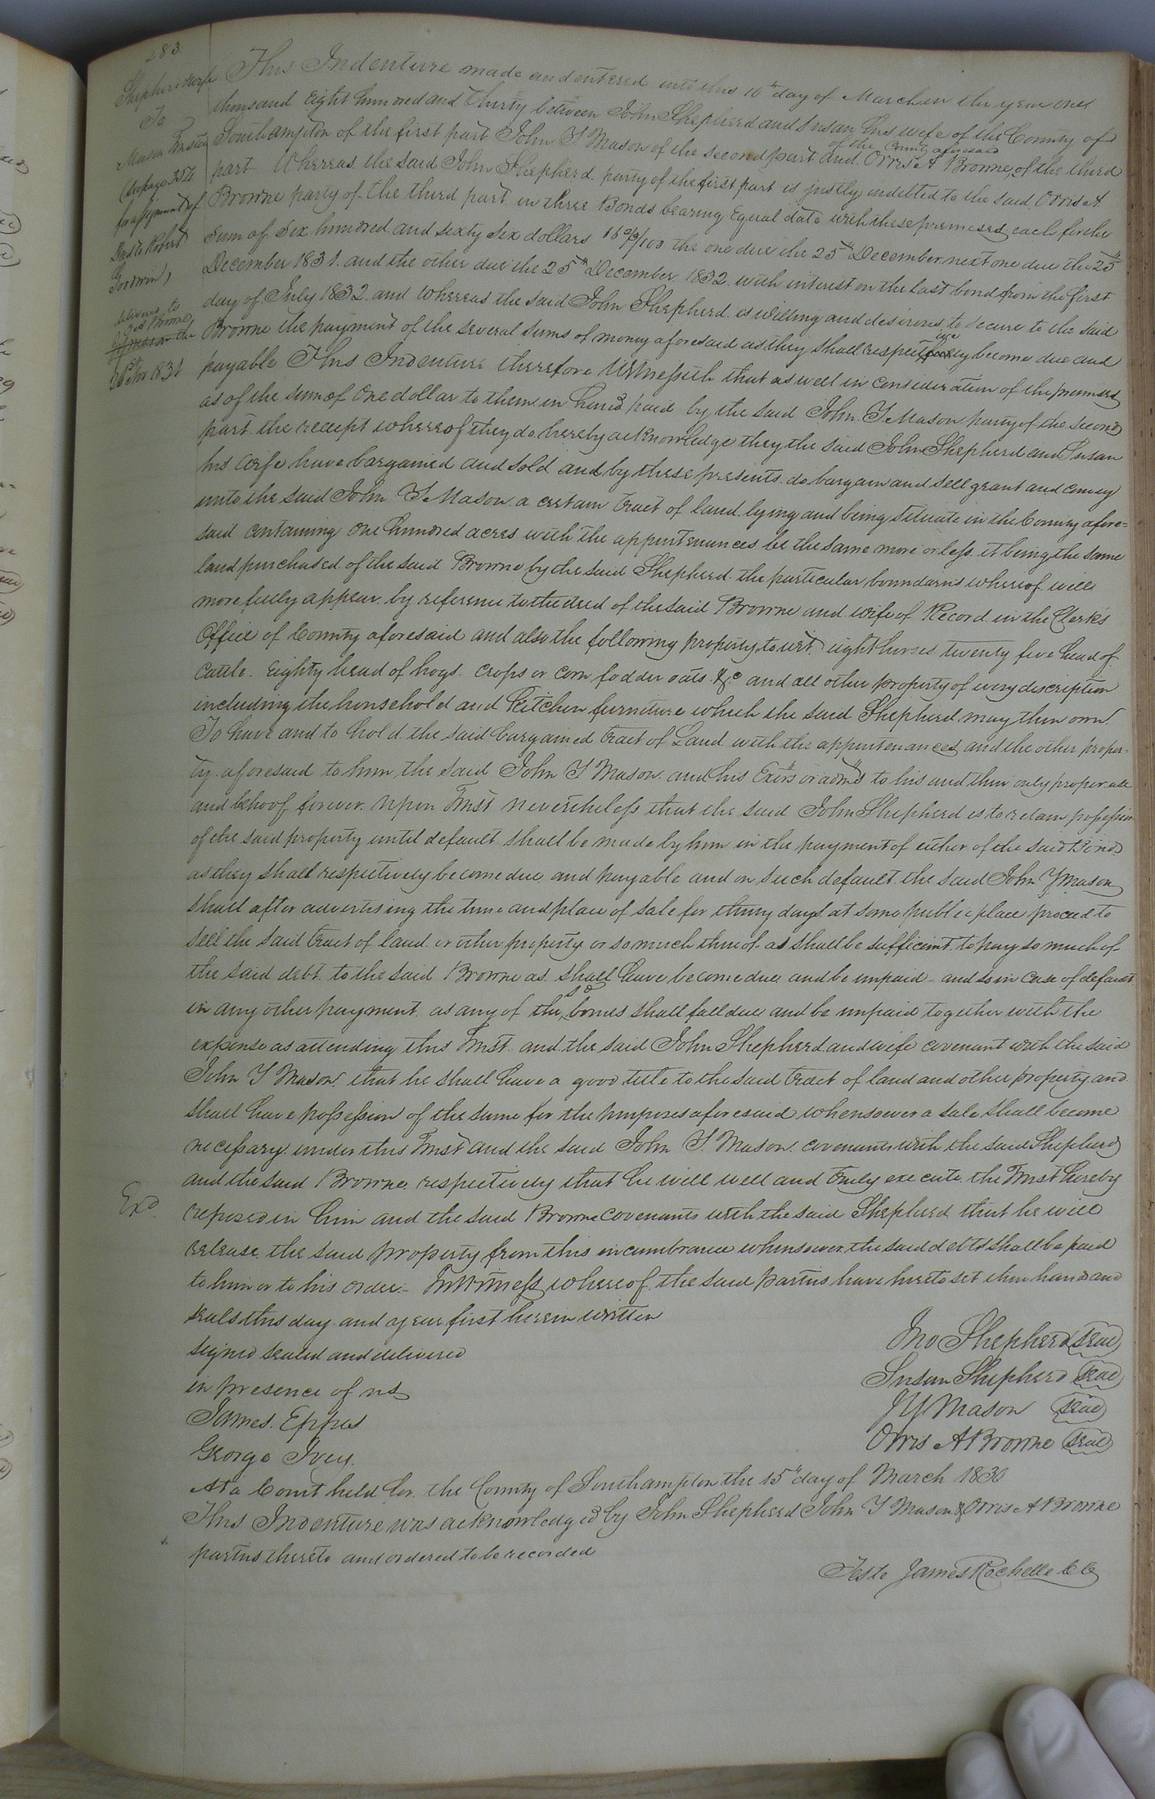 283
Shepherd & wife
To
Mason Trustee
(See page 354
for assignment of
Deed to Robert
Goodwin)
delivered to
the
26th Nov 1831
This Indenture made and entered into this 10th day of March in the year one
thousand Eight hundred and Thirty between John Shepherd and Susan his wife of the County of
Southampton of the first part John Y Mason of the second part and Orris A Browne, of the County aforesaid of the third
part Whereas the said John Shepherd party of the first part is justly indebted to the said Orris A
Browne party of the third part in three Bonds bearing Equal date with these premises each for the
Sum of Six hundred and sixty six dollars /100 the one due the 25th December next one due the 25th
December 1831. and the other due the 25th December 1832 with interest on the last bond from the first
day of July 1832. and Whereas the said John Shepherd is willing and desirous to secure to the said
Browne the payment of the several Sums of money aforesaid as they shall respectively become due and
payable This Indenture therefore Witnesseth that as well in consideration of the premises
as of the sum of one dollar to them in hand paid by the said John Y Mason party of the second
part the receipt whereof they do hereby acknowledge they the said John Shepherd and Susan
his wife have bargained and sold and by these presents do bargain and sell grant and convey
unto the said John Y Mason a certain tract of land lying and being situate in the County afore=
said containing one hundred acres with the appurtenances be the same more or less it being the same
land purchased of the said Browne by the said Shepherd the particular boundaries whereof will
more fully appear by reference to the deed of the said Browne and wife of Record in the Clerk's
Office of County aforesaid and also the following property to wit. eight horses twenty five head of
Cattle. Eighty head of hogs. Crops or corn fodder oats &c and all other property of every discription
including the household and Kitchen furniture which the said Shepherd may then own
To have and to hold the said bargained tract of Land with the appurtenances and the other proper-
ty aforesaid to him the said John Y Mason and his Exors or admrs to his and their only proper use
and behoof forever upon Trust nevertheless that the said John Shepherd is to retain possession
of the said property until default shall be made by him in the payment of either of the said Bonds
as they shall respectively become due and payable and on such default the said John Y Mason
shall after advertising the time and place of sale for thirty days at some public place proceed to
sell the said tract of land or other property or so much thereof as shall be sufficient to pay so much of
the said debt to the said Browne as shall have become due and be unpaid - and so in case of default
in any other payment, as any of the sd bonds shall fall due and be unpaid together with the
expense as attending this Trust and the said John Shepherd and wife covenant with the said
John Y Mason that he shall have a good title to the said tract of land and other property and
shall have possession of the same for the purposes aforesaid whensoever a sale shall become
necessary under this Trust and the said John Y. Mason covenants with the said Shepherd
and the said Browne respectively that he will well and truly execute the Trust hereby
Exd
reposed in him and the said Browne covenants with the said Shepherd that he will
release the said property from this incumbrance whensoever the said debts shall be paid
to him or to his order - In Witness whereof the said parties have hereto set their hands and
seals this day and year first herein written
signed sealed and delivered
in presence of us
James. Eppes
George Ivey.
Jno Shepherd seal
Susan Shepherd seal
J Y Mason seal
Orris A Browne seal
At a Court held for the County of Southampton the 15th day of March 1830
This Indenture was acknowledged by John Shepherd John Y Mason & Orris A Browne
parties thereto and ordered to be recorded
Teste James Rochelle CC